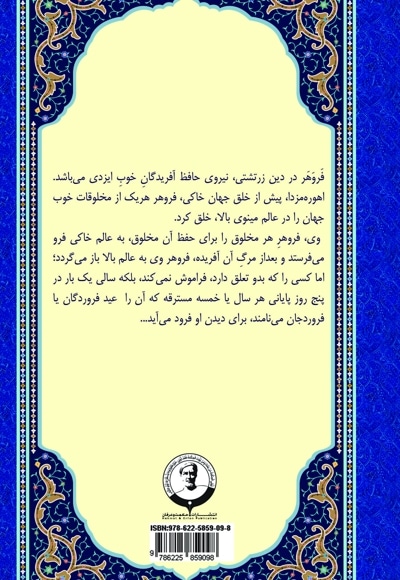 فَروَهَر در دین زرتشتی، نیروی حافظ آفریدگانِ خوب ایزدی می‌باشد.
اهوره‌مزدا، پیش از خلق جهان خاکی، فروهر هریک از مخلوقات خوب
جهان را در عالم مینوی بالا، خلق کرد.
وی، فروهرِ هر مخلوق را برای حفظ آن مخلوق، به عالم خاکی فرو
می‌فرستد و بعداز مرگِ آن آفریده، فروهر وی به عالم بالا باز می‌گردد؛
اما کسی را که بدو تعلق دارد، فراموش نمی‌کند، بلکه سالی یک بار در
پنج روز پایانی هر سال یا خمسه مسترقه که آن را عید فروردگان یا
فروردجان می‌نامند، برای دیدن او فرود می‌آید...
ISBN:978-622-5859-09-8
9 786225 859098